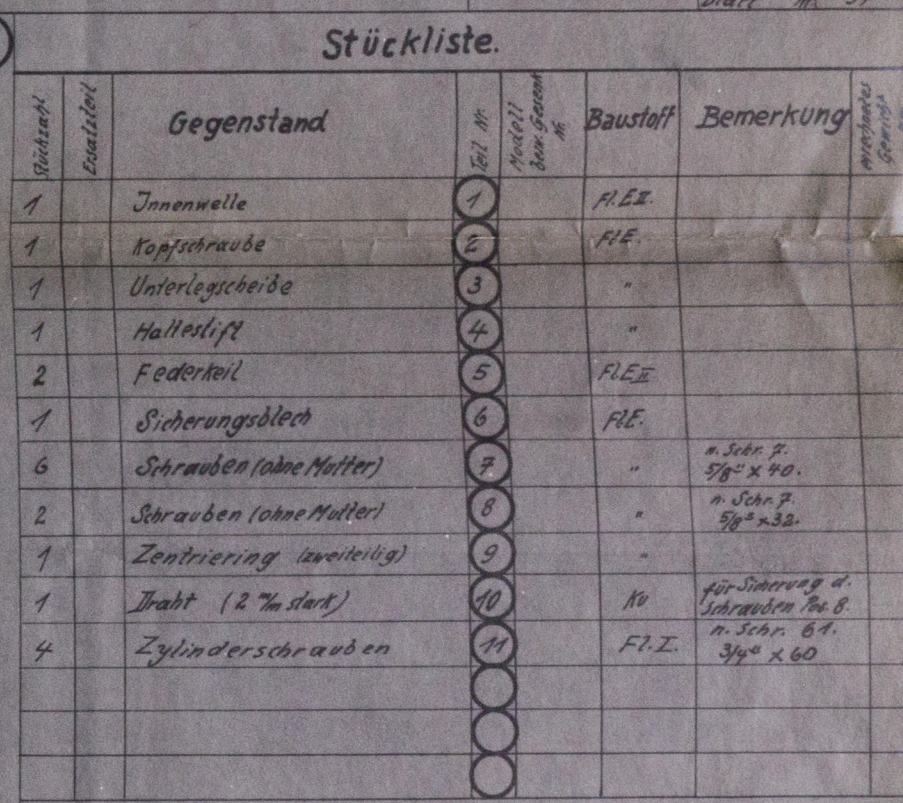 Blatt Nr.
Stückliste.
Stückzahl Ersatzteil Gegenstand Teil Nr. Modell bezw. Gesenk Nr. Baustoff Bemerkung errechnetes Gewicht
1 Innenwelle 1 Fl.E II.
1 Kopfschraube 2 Fl E.
1 Unterlegscheibe 3 "
1 Haltestift 4 "
2 Federkeil 5 Fl.E II
1 Sicherungsblech 6 Fl.E.
6 Schrauben (ohne Mutter) 7 " n. Schr. 7.
5/8" x 40.
2 Schrauben (ohne Mutter) 8 " n. Schr. 7.
5/8" x 32.
1 Zentriering (zweiteilig) 9 "
1 Draht (2 m/m stark) 10 Ku für Sicherung d.
Schrauben Pos. 8.
4 Zylinderschrauben 11 Fl. I. n. Schr. 61.
3/4" x 60